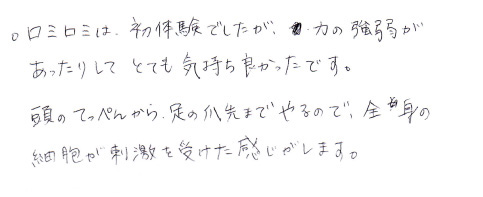 。ロミロミは、初体験でしたが、力の強弱が
あったりして とても 気持ち良かったです。
頭のてっぺんから、足の爪先までやるので、全身の
細胞が刺激を受けた感じがします。